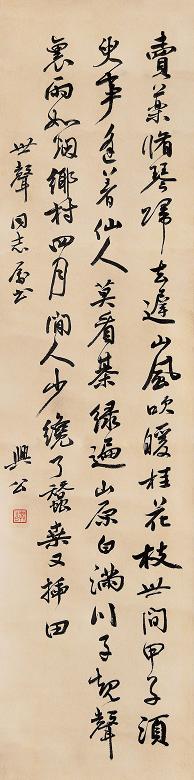 賣藥脩琴歸去遲山風吹暖桂花枝世間甲子須
臾事逢着仙人莫看棊綠遍山原白滿川子規聲
裏雨如烟鄉村四月閒人少纔了蠶桑又插田
世聲同志屬書
興公